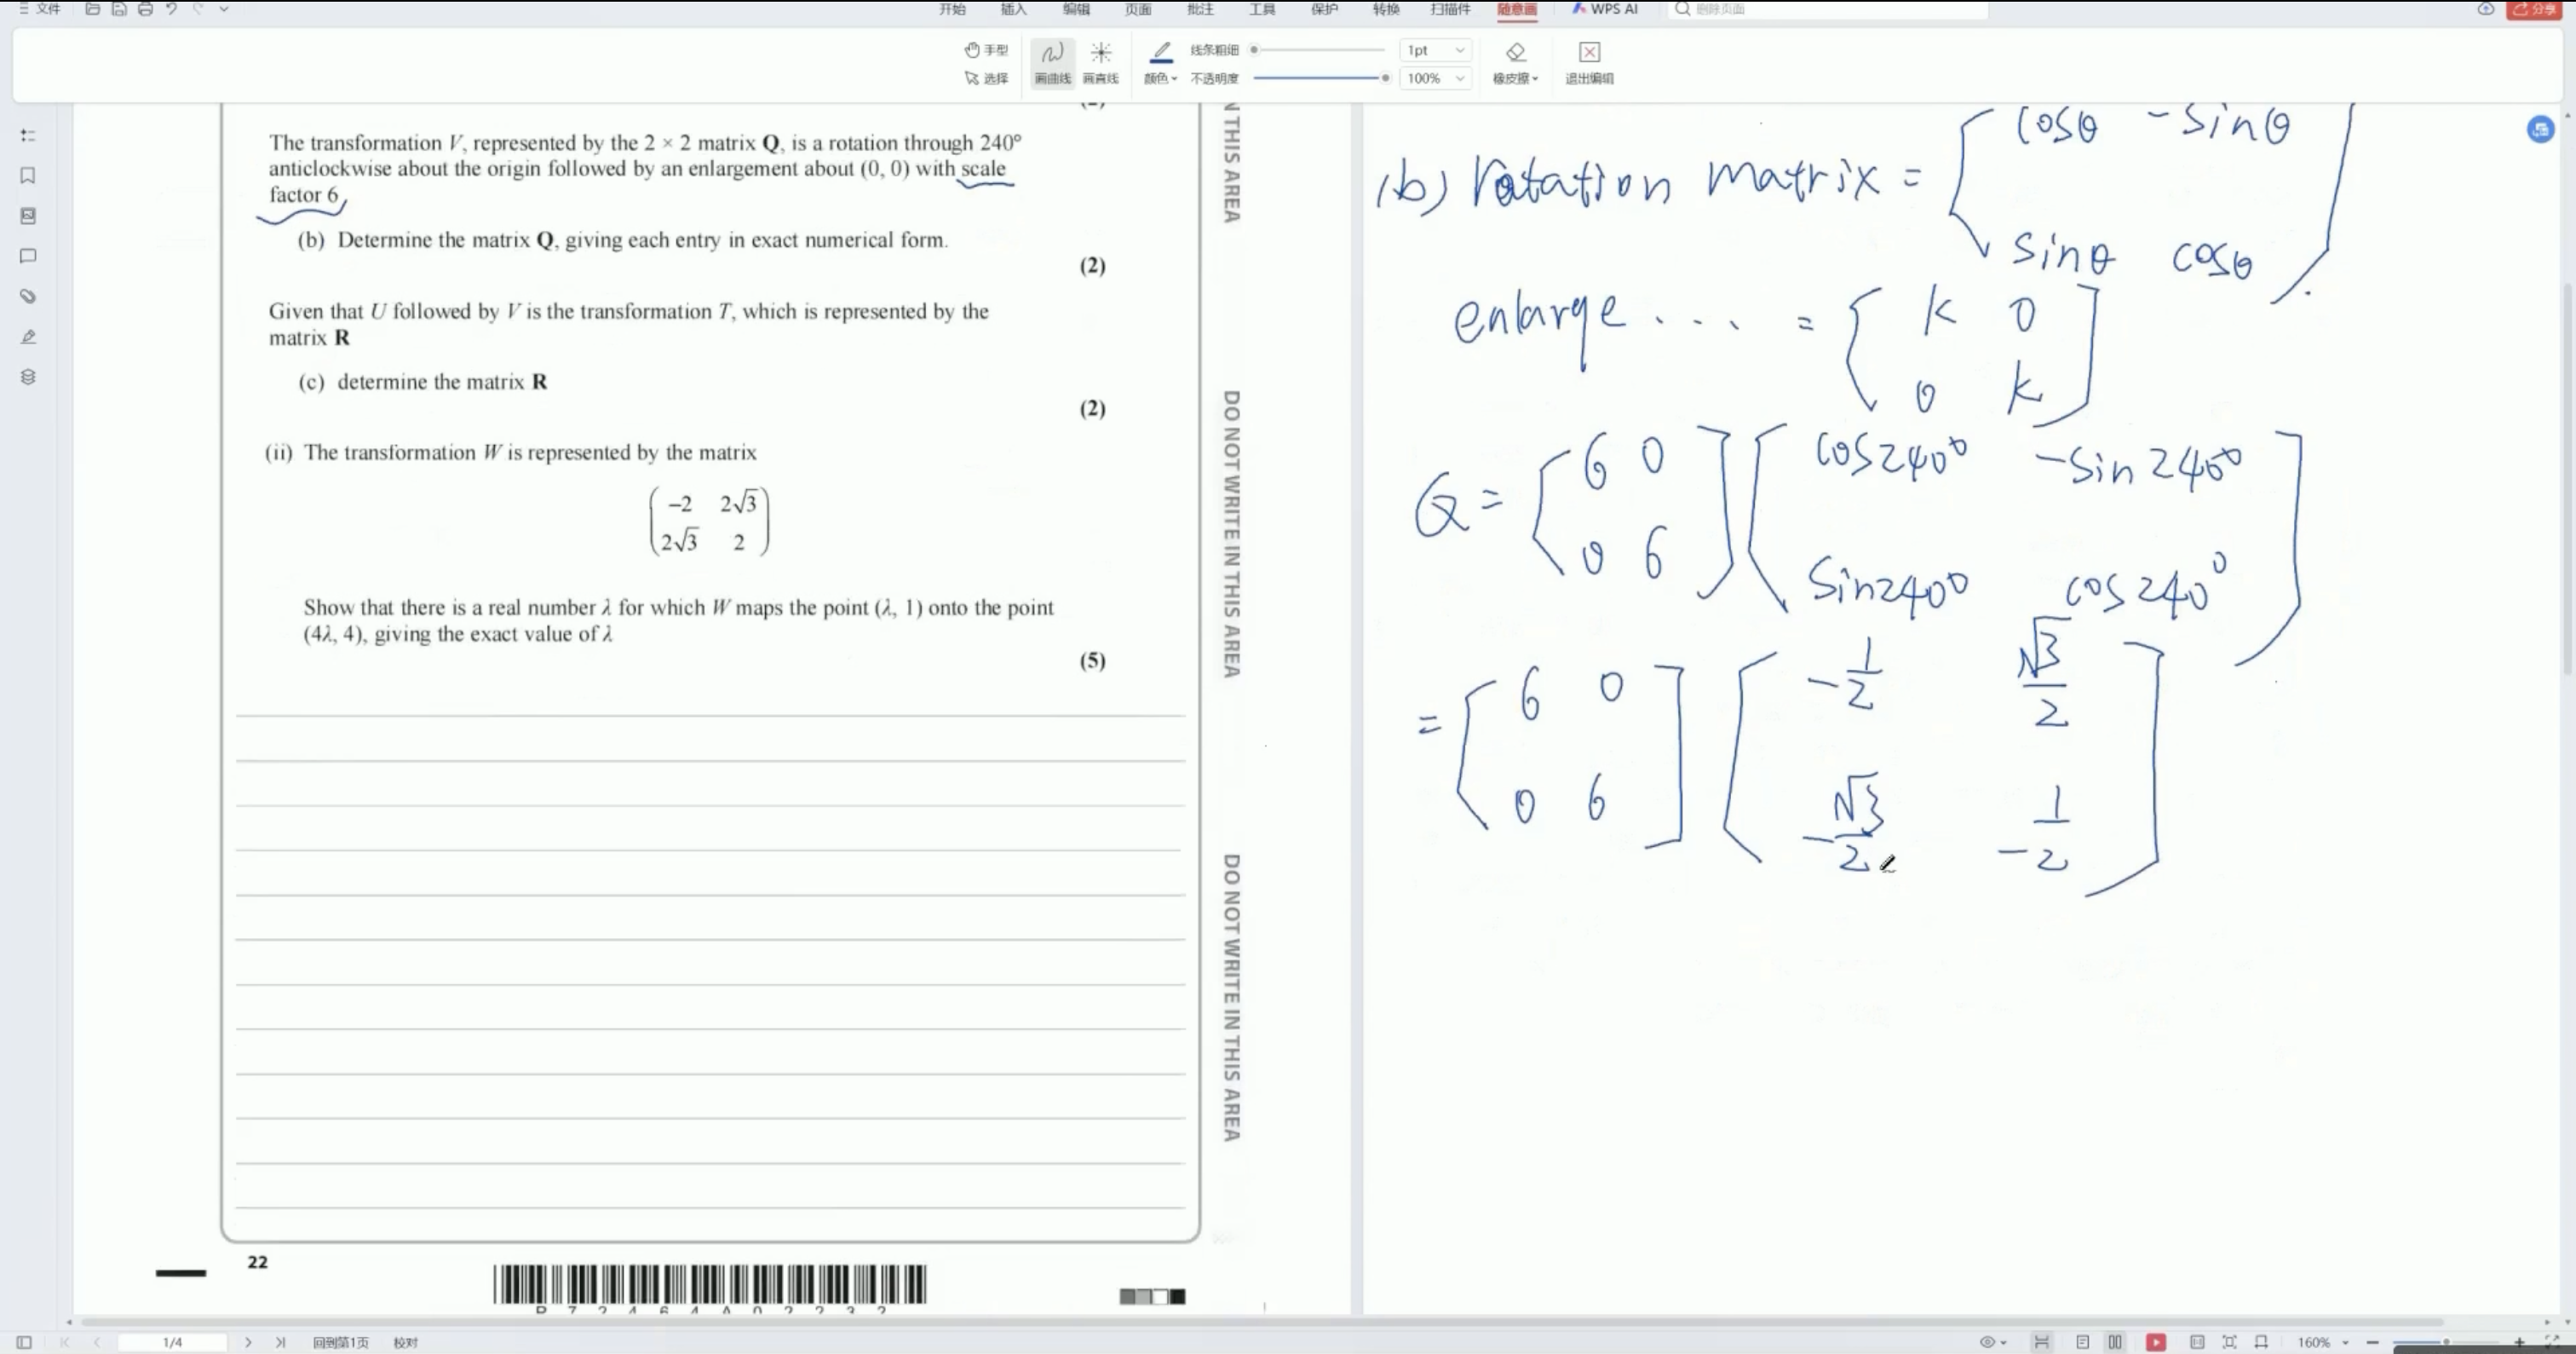 文件
开始 插入 编辑 页面 批注 工具 保护 转换 扫描件 随意画 WPS AI 删除页面 分享
手型 选择 画曲线 画直线 颜色 线条粗细 1pt 不透明度 100% 橡皮擦 退出编辑
The transformation V, represented by the 2 × 2 matrix Q, is a rotation through 240°
anticlockwise about the origin followed by an enlargement about (0, 0) with scale
factor 6
(b) Determine the matrix Q, giving each entry in exact numerical form.
(2)
Given that U followed by V is the transformation T, which is represented by the
matrix R
(c) determine the matrix R
(2)
(ii) The transformation W is represented by the matrix
−2 2√3
2√3 2
Show that there is a real number λ for which W maps the point (λ, 1) onto the point
(4λ, 4), giving the exact value of λ
(5)
22
P 7 2 4 6 4 A 0 2 2 3 2
N THIS AREA
DO NOT WRITE IN THIS AREA
DO NOT WRITE IN THIS AREA
cosθ -sinθ
(b) rotation matrix =
sinθ cosθ
enlarge .... = [ k 0
0 k ]
Q = [ 6 0 ] [ cos240° -sin240°
0 6 sin240° cos240° ]
= [ 6 0 ] [ -1/2 √3/2
0 6 -√3/2 -1/2 ]
1/4 回到第1页 校对 160%